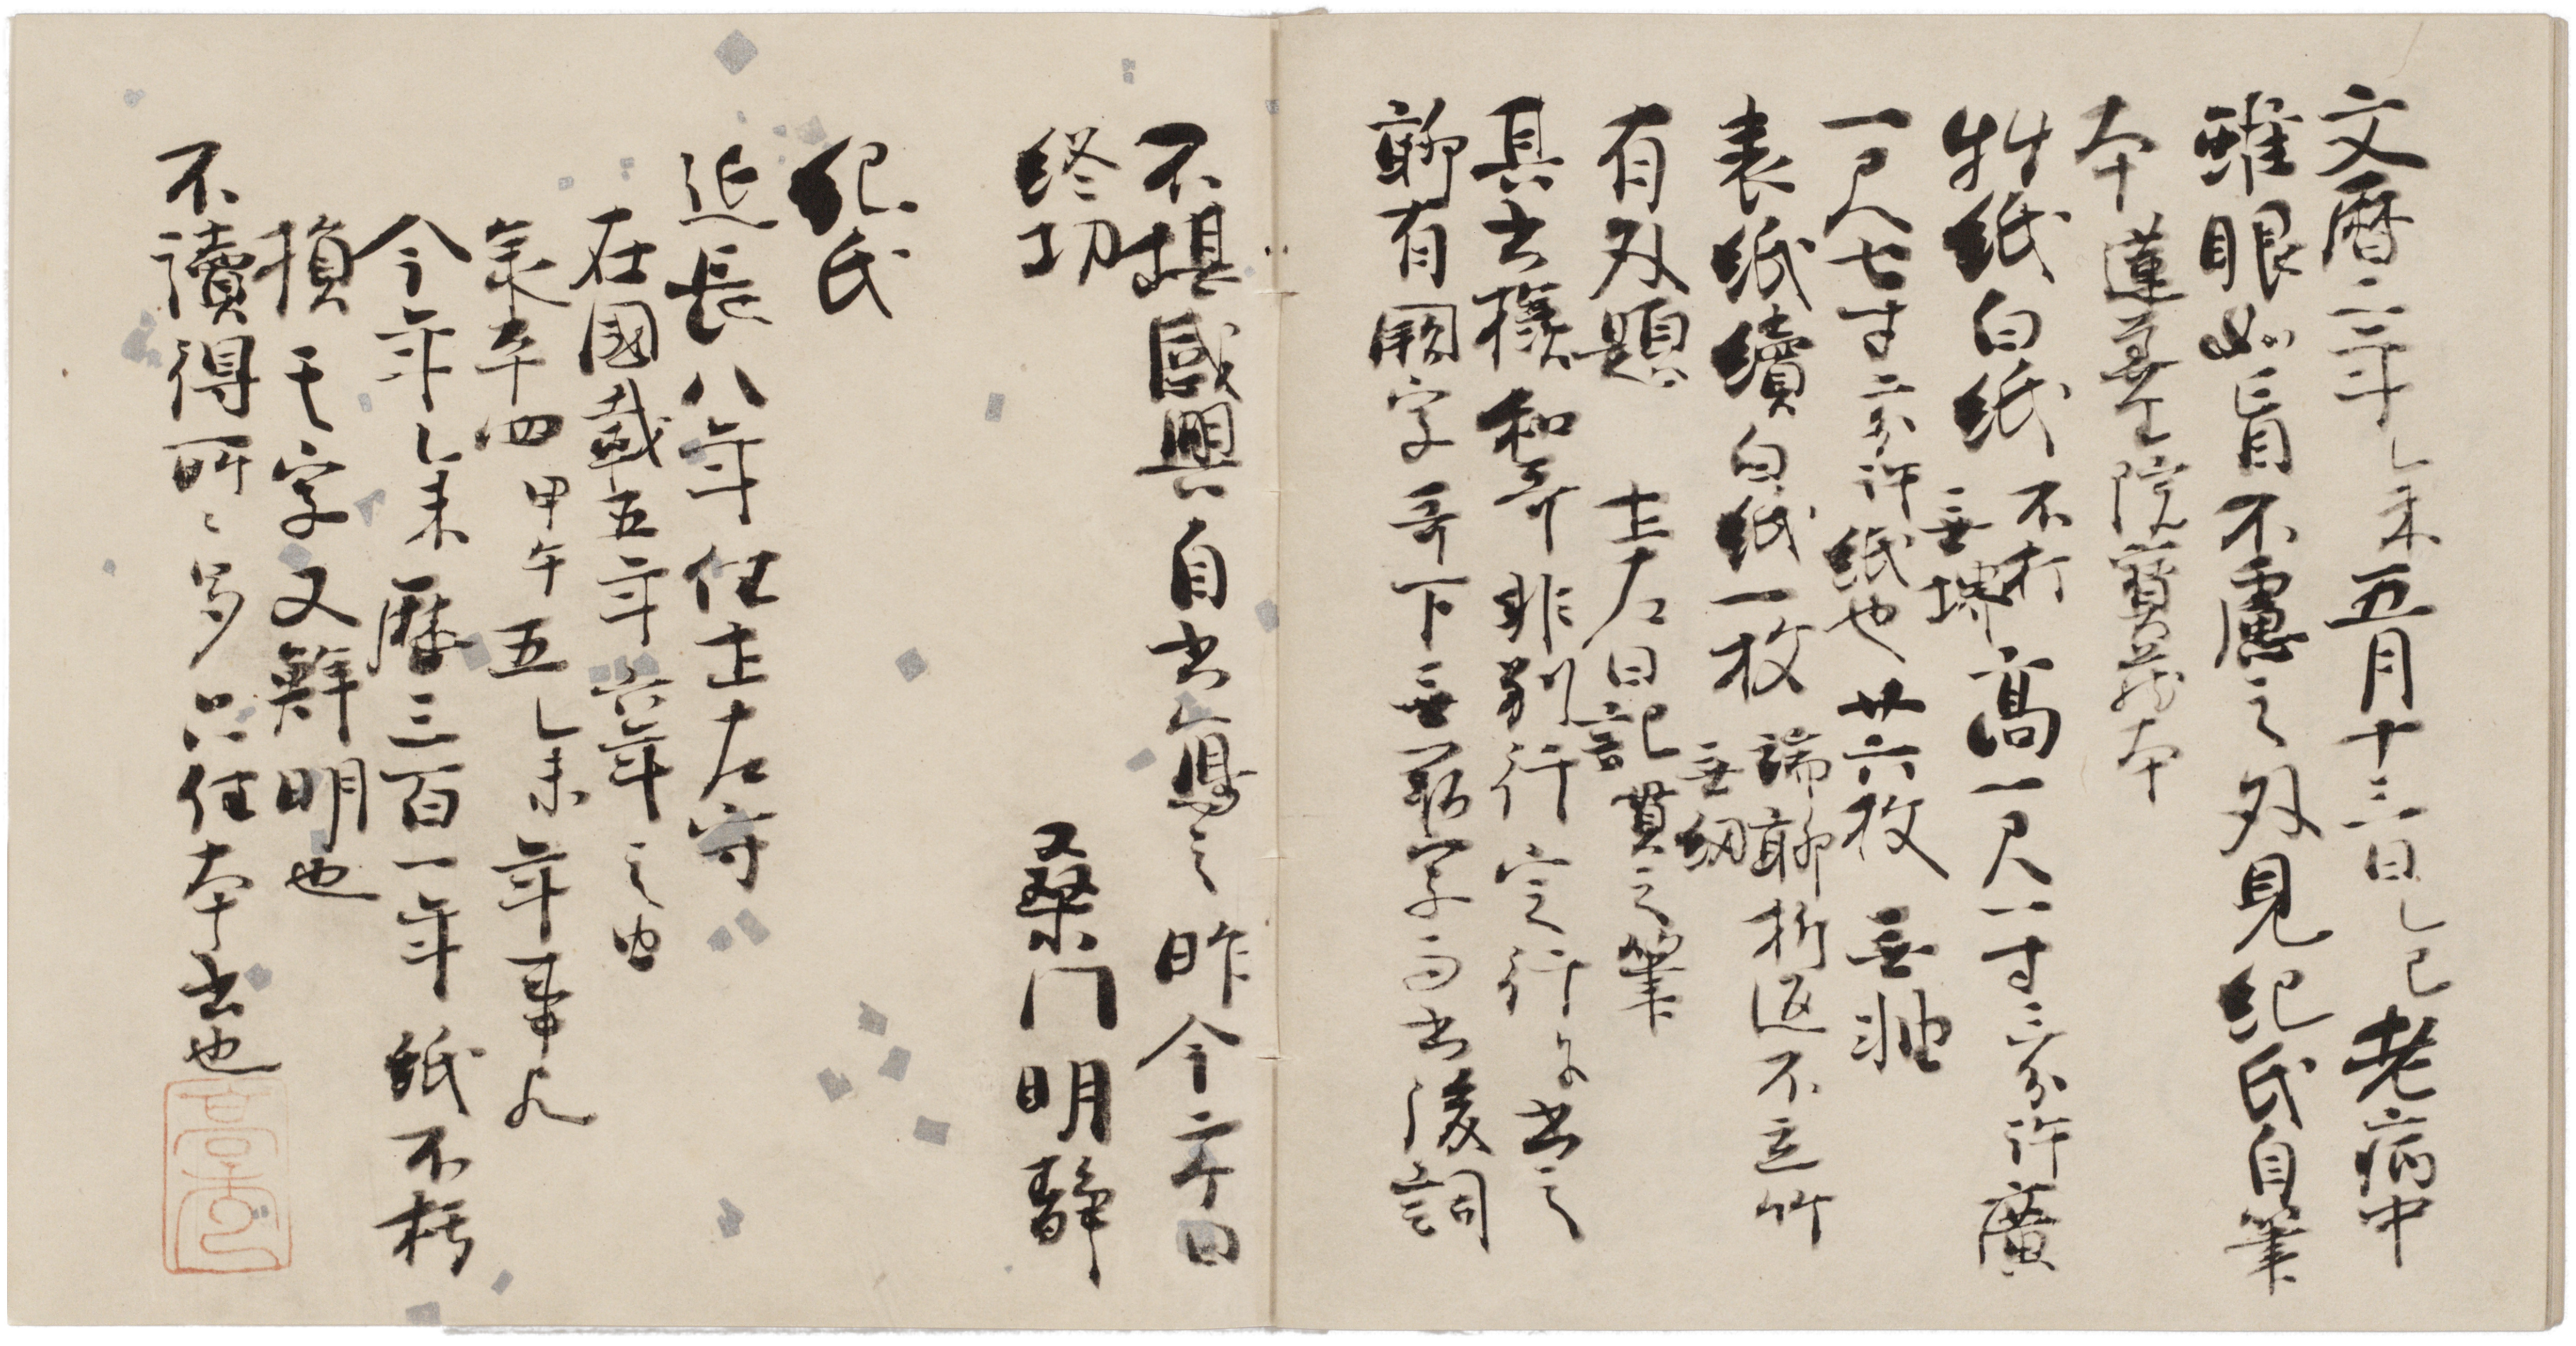 文暦二年乙未五月十三日乙巳老病中
雖眼如盲不慮之外見紀氏自筆
本蓮華王院寳蔵本
料紙白紙不打無堺高一尺一寸三分許廣
一尺七寸二分許紙也廿六枚無軸
表紙續白紙一枚端聊折返不立竹無紐
有外題土左日記貫之筆
其書様和哥非別行定行に書之
聊有闕字哥下無闕字而書後詞
不堪感興自書寫之昨今二ケ日
終功
桑門明静
紀氏
延長八年任土左守
在國載五年六年之由
承平四甲午五乙未年事歟
今年乙未暦三百一年紙不朽
損其字又鮮明也
不讀得所々多只任本書也